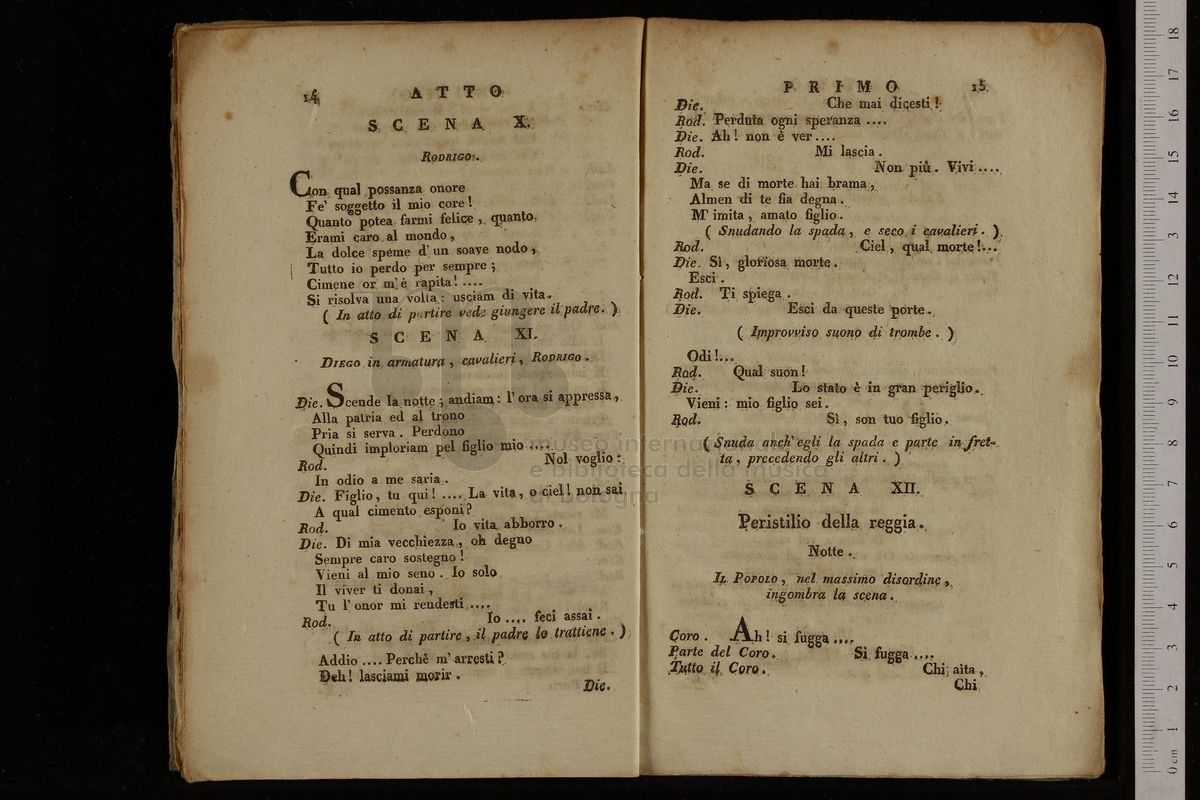 14
ATTO
SCENA X.
RODRIGO.
Con qual possanza onore
Fe' soggetto il mio core!
Quanto potea farmi felice, quanto,
Erami caro al mondo,
La dolce speme d'un soave nodo,
Tutto io perdo per sempre;
Cimene or m'è rapita!....
Si risolva una volta: usciam di vita.
( In atto di partire vede giungere il padre. )
SCENA XI.
DIEGO in armatura, cavalieri, RODRIGO.
Die. Scende la notte; andiam: l'ora si appressa,
Alla patria ed al trono
Pria si serva. Perdono
Quindi imploriam pel figlio mio....
Rod. Nol voglio:
In odio a me saria.
Die. Figlio, tu qui!.... La vita, o ciel! non sai
A qual cimento esponi?
Rod. Io vita abborro.
Die. Di mia vecchiezza, oh degno
Sempre caro sostegno!
Vieni al mio seno. Io solo
Il viver ti donai,
Tu l'onor mi rendesti....
Rod. Io.... feci assai.
( In atto di partire, il padre lo trattiene. )
Addio.... Perchè m'arresti?
Deh! lasciami morir.
Die.
PRIMO
15
Die. Che mai dicesti!
Rod. Perduta ogni speranza....
Die. Ah! non è ver....
Rod. Mi lascia.
Die. Non più. Vivi....
Ma se di morte hai brama,
Almen di te fia degna.
M'imita, amato figlio.
( Snudando la spada, e seco i cavalieri. )
Rod. Ciel, qual morte!...
Die. Sì, gloriosa morte.
Esci.
Rod. Ti spiega.
Die. Esci da queste porte.
( Improvviso suono di trombe. )
Odi!...
Rod. Qual suon!
Die. Lo stato è in gran periglio.
Vieni: mio figlio sei.
Rod. Sì, son tuo figlio.
( Snuda anch'egli la spada e parte in fret-
ta, precedendo gli altri. )
SCENA XII.
Peristilio della reggia.
Notte.
IL POPOLO, nel massimo disordine,
ingombra la scena.
Coro. Ah! si fugga....
Parte del Coro. Si fugga....
Tutto il Coro. Chi aita,
Chi
museo internazionale
e biblioteca della musica
di bologna
0 cm 1 2 3 4 5 6 7 8 9 10 11 12 13 14 15 16 17 18